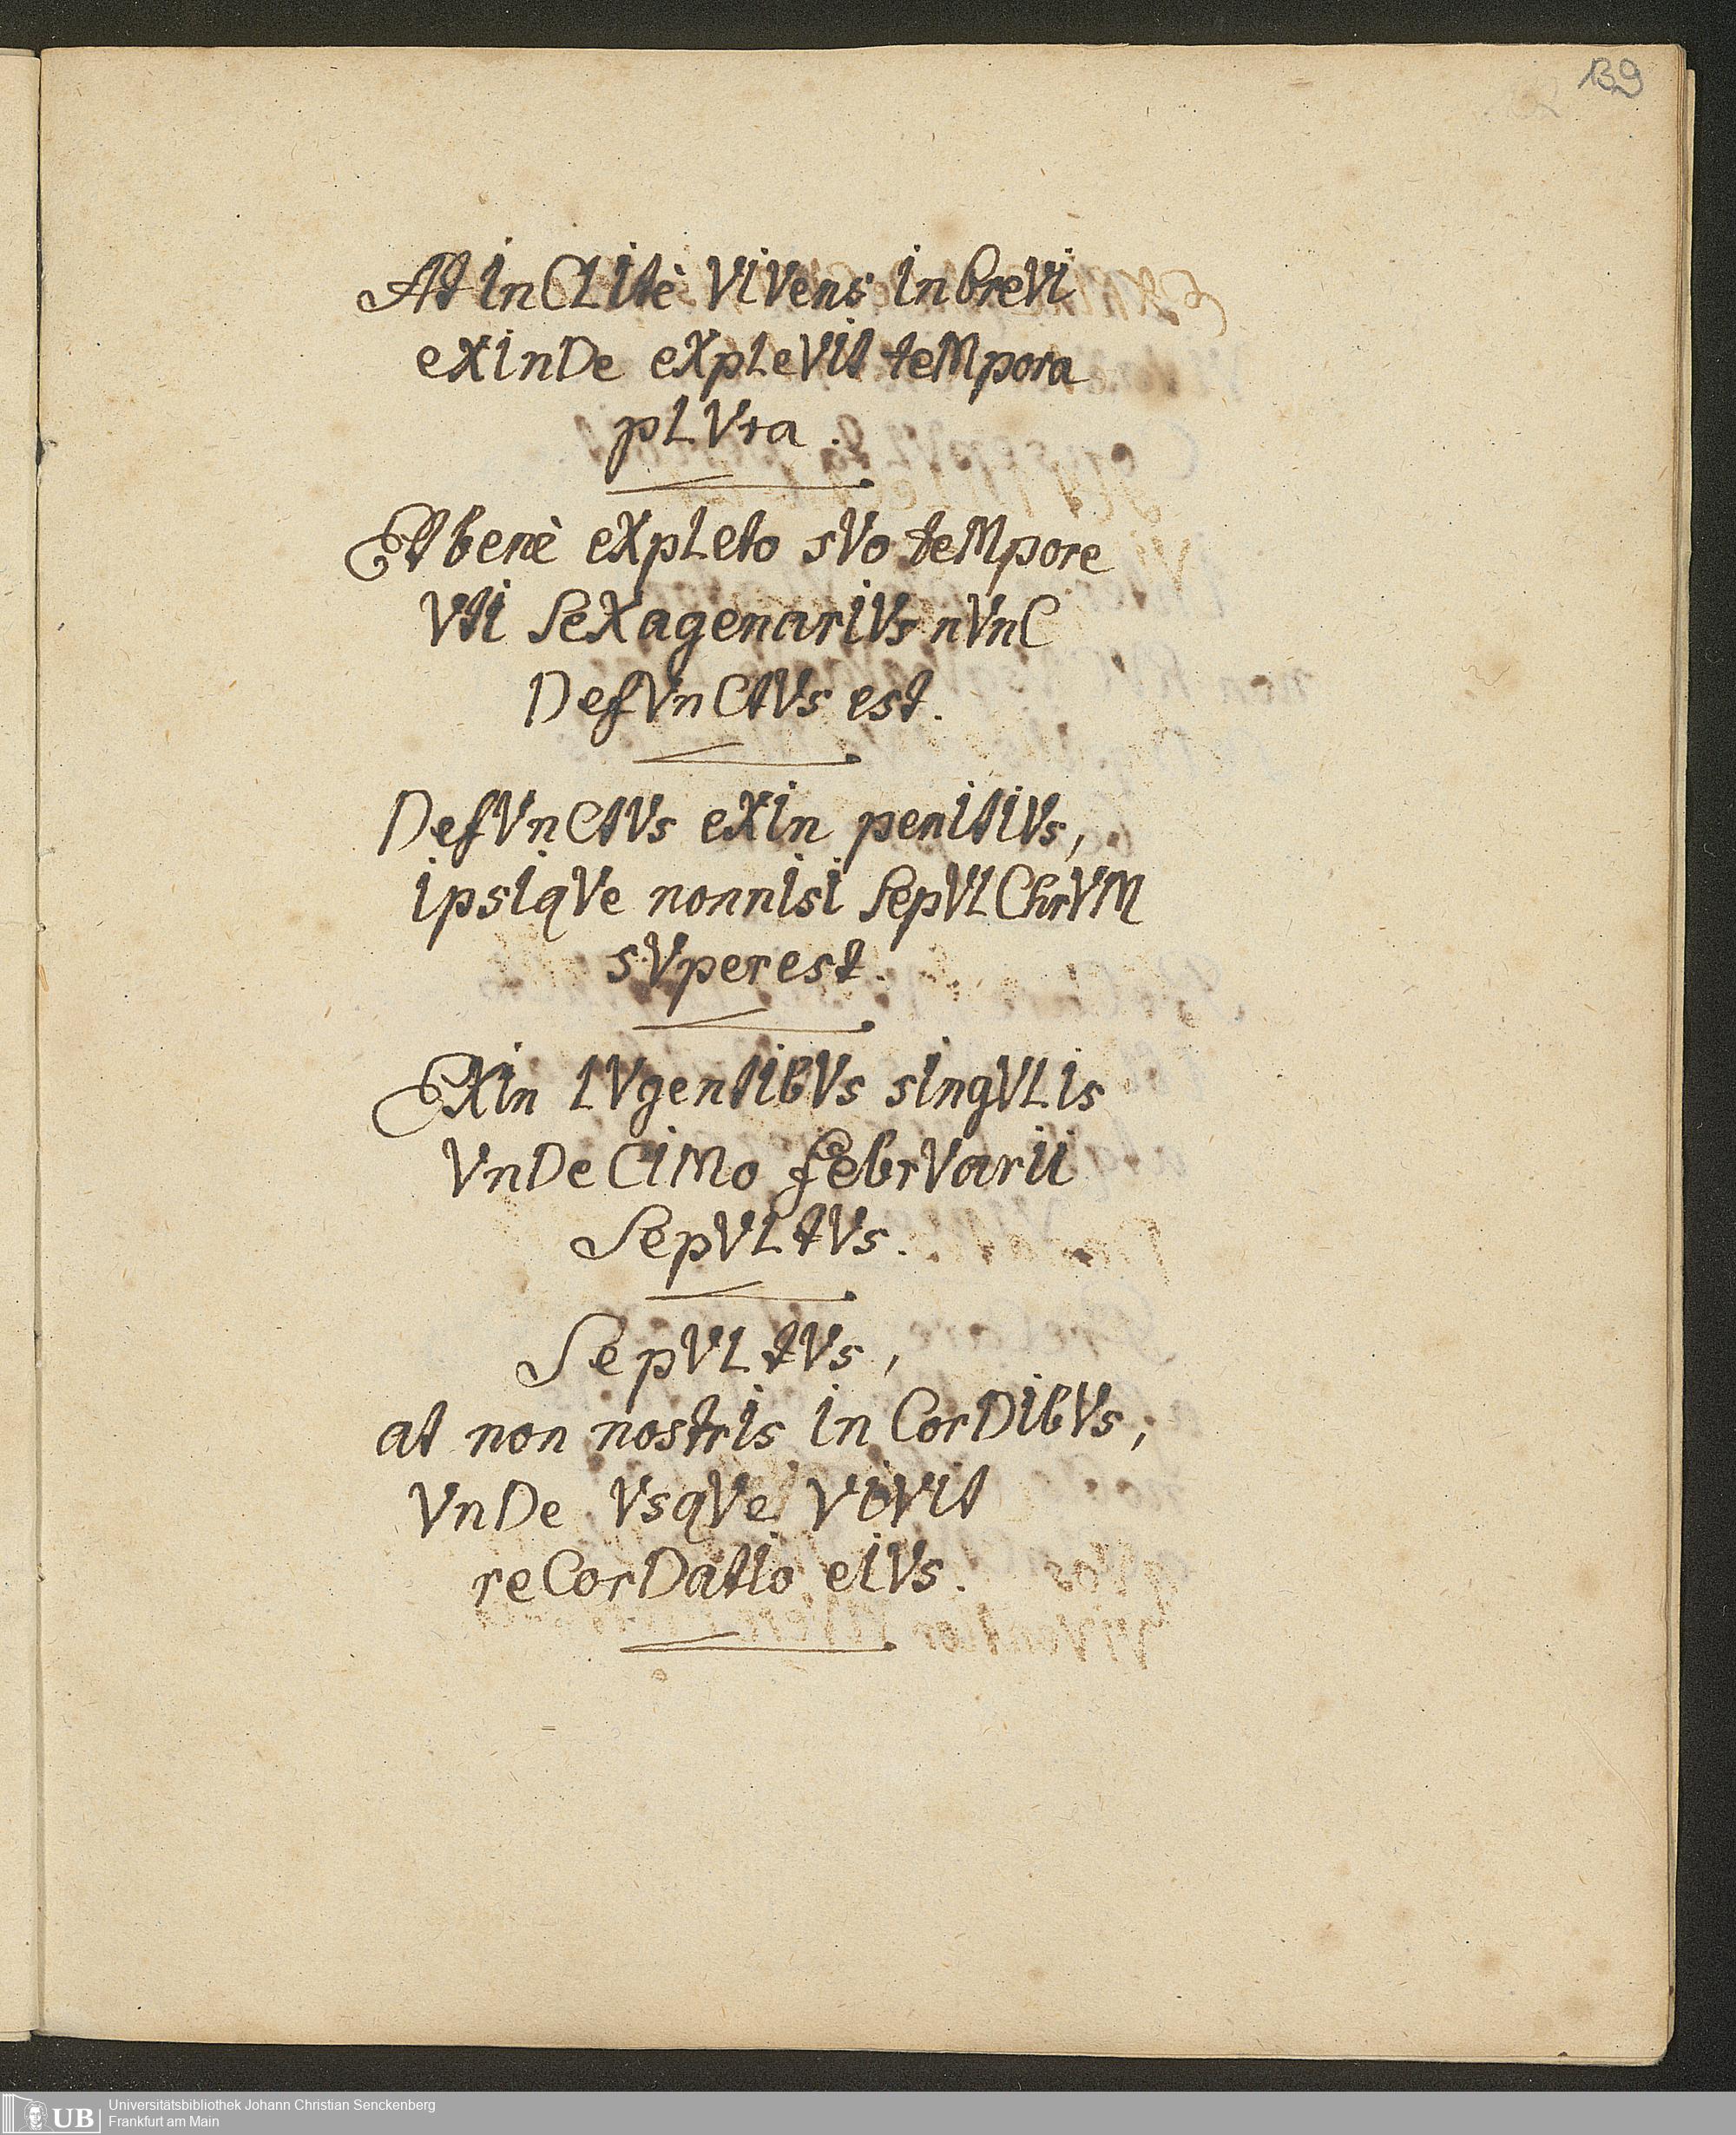 139
At InCLItè VIVens In breVI
eXInDe eXpLeVIt teMpora
pLVra.
Et benè eXpLeto sVo teMpore
VtI SeXagenarIVs nVnC
DefVnCtVs est.
DefVnCtVs eXIn penItIVs,
IpsIqVe nonnIsI SepVLChrVM
sVperest.
EXIn LVgentIbVs sIngVLIs
VnDeCIMo febrVarII
SepVLtVs.
SepVLtVs,
at non nostrIs In CorDIbVs,
VnDe VsqVe VIVIt
reCorDatIo eIVs.
UB
Universitätsbibliothek Johann Christian Senckenberg
Frankfurt am Main